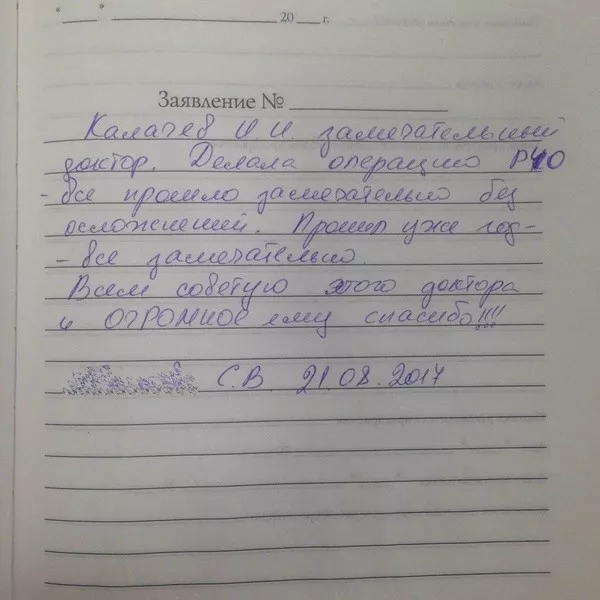 "___"__________ 20___г.
Заявление № ____________
Калачев И.И. замечательный
доктор. Делала операцию РЧО
- все прошло замечательно без
осложнений. Прошел уже год-
- все замечательно.
Всем советую этого доктора
и ОГРОМНОЕ ему спасибо!!!!
С.В. 21 08.2017